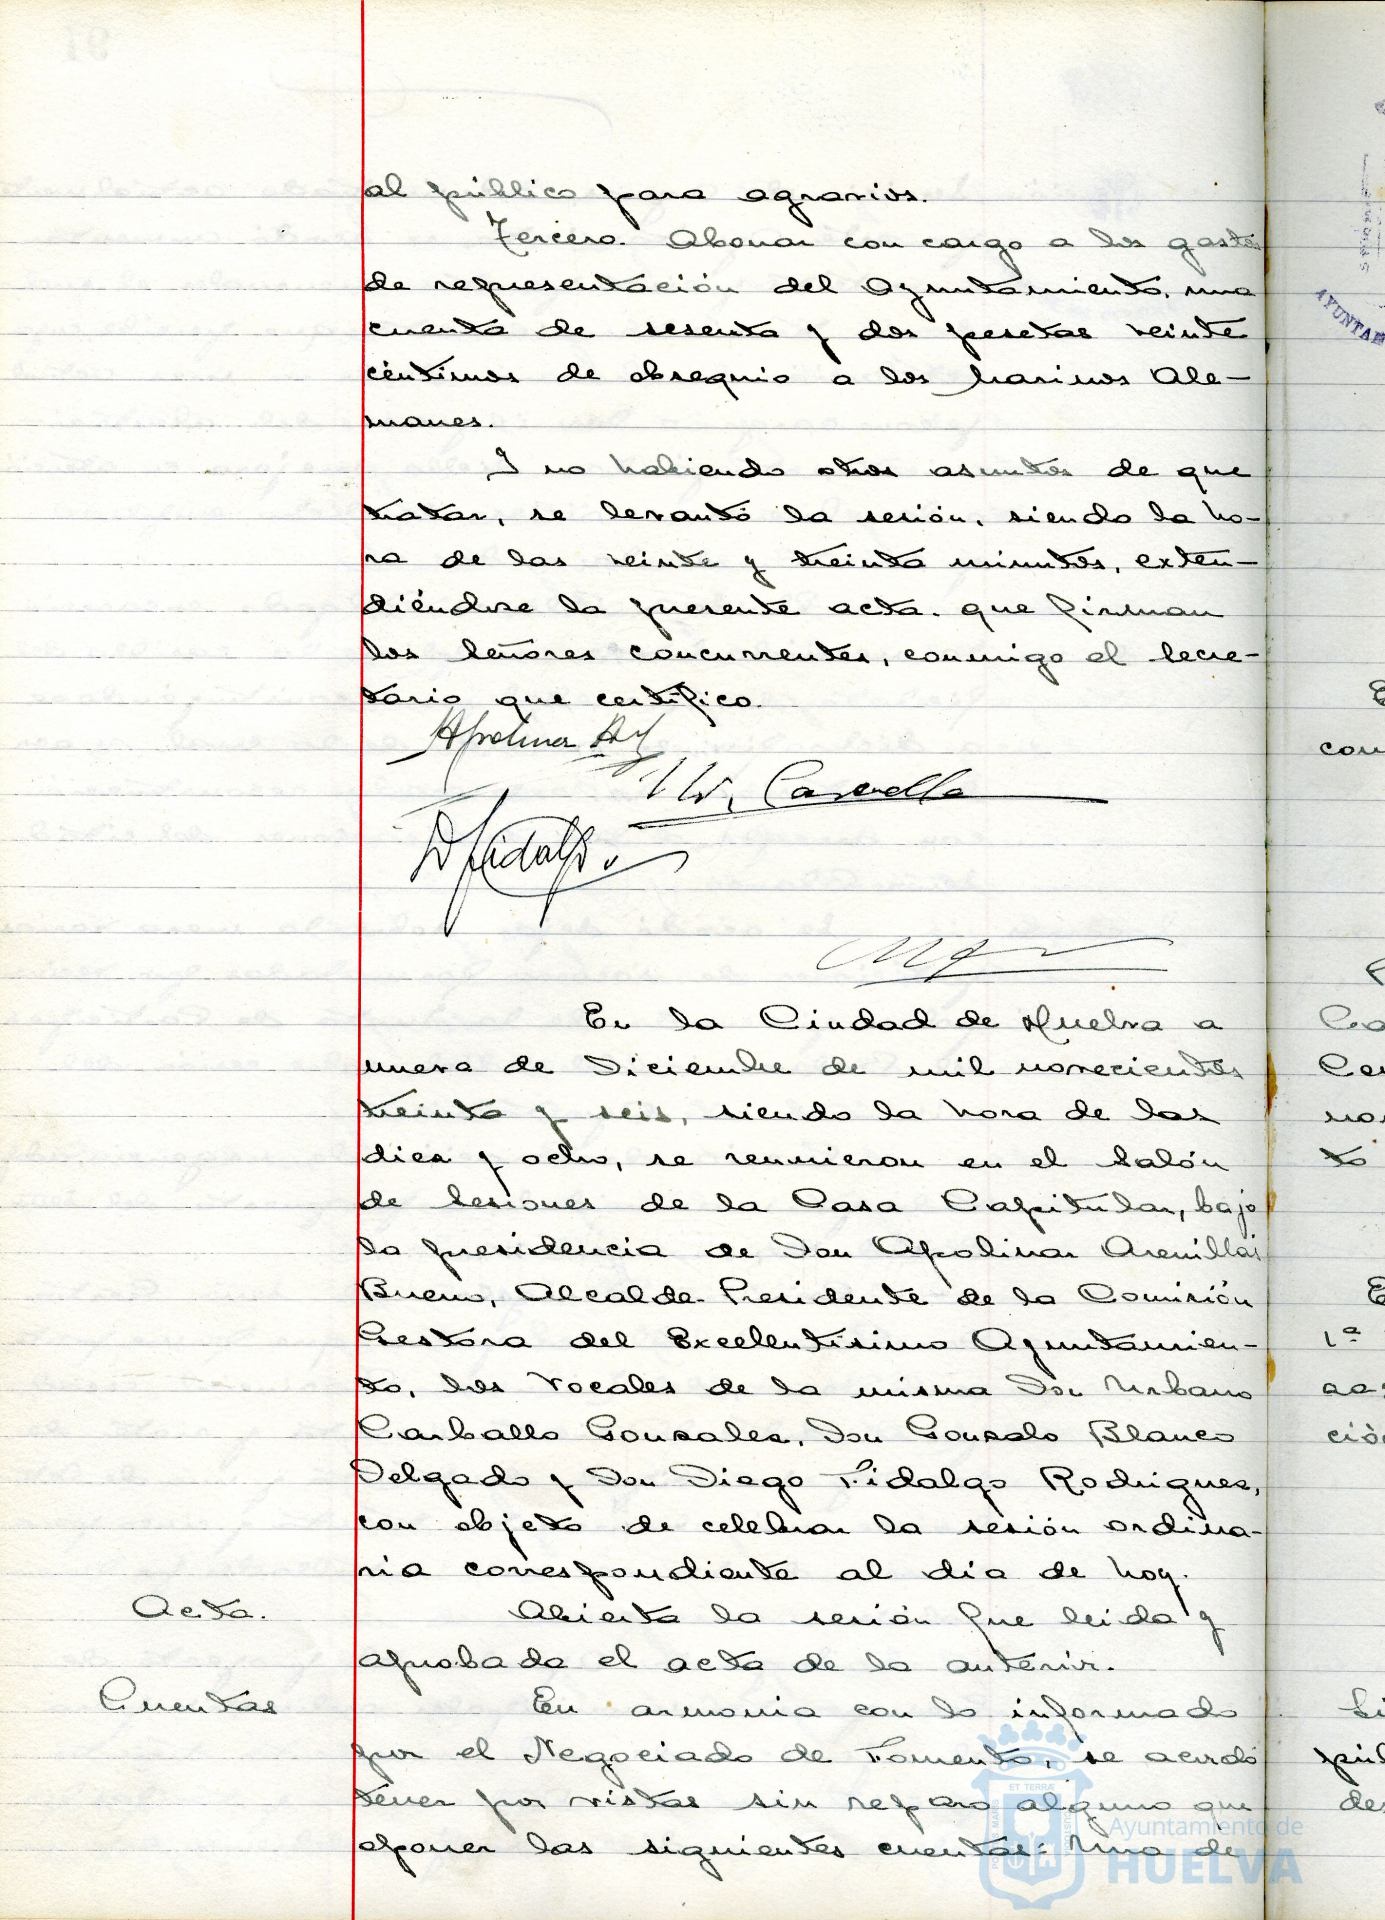 al público para agravios.
Tercero. Abonar con cargo a los gastos
de representación del Ayuntamiento, una
cuenta de sesenta y dos pesetas veinte
céntimos de obsequio a los Marinos Ale-
manes.
Y no habiendo otros asuntos de que
tratar, se levantó la sesión, siendo la ho-
ra de las veinte y treinta minutos, exten-
diéndose la presente acta. que firman
los Señores concurrentes, conmigo el Secre-
tario que certifico.
Apolinar
Carballo
D Fidalgo
En la Ciudad de Huelva a
nueve de Diciembre de mil novecientos
treinta y seis, siendo la hora de las
diez y ocho, se reunieron en el Salón
de Sesiones de la Casa Capitular, bajo
la presidencia de Don Apolinar Arenillas
Bueno, Alcalde-Presidente de la Comisión
Gestora del Excelentísimo Ayuntamien-
to, los Vocales de la misma Don Urbano
Carballo Gonzalez, Don Gonzalo Blanco
Delgado y Don Diego Fidalgo Rodriguez,
con objeto de celebrar la sesión ordina-
ria correspondiente al día de hoy.
Acta.
Abierta la sesión fue leida y
aprobada el acta de la anterior.
Cuentas
En armonia con lo informado
por el Negociado de Fomento, se acordó
tener por vistas sin reparo alguno que
oponer las siguientes cuentas: Una de
AYUNTAM
E
con
Ca
no
to
E
1ª
ció
púb
des
Ayuntamiento de
HUELVA